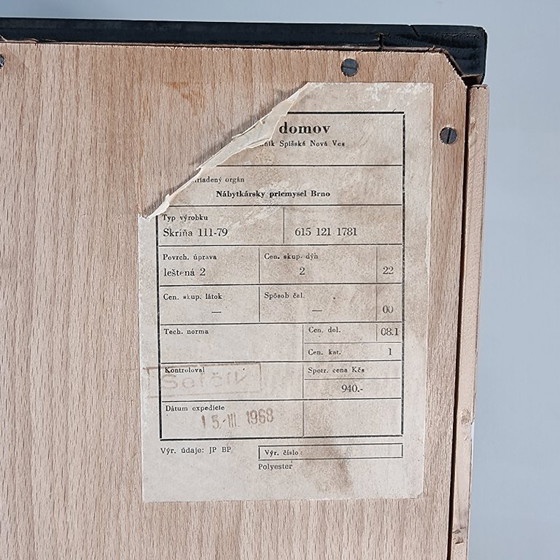 domov
Spišská Nová Ves
orgán
Nábytkársky priemysel Brno
Typ výrobku
Skriňa 111-79 615 121 1781
Povrch. úprava Cen. skup. dýh
leštená 2 2 22
Cen. skup. látok Spôsob čal.
— — 00
Tech. norma Cen. del. 08.1
Cen. kat. 1
Kontroloval Spotr. cena Kčs
940.-
Dátum expedície
15.III 1968
Výr. údaje: JP BP Výr. číslo
Polyester